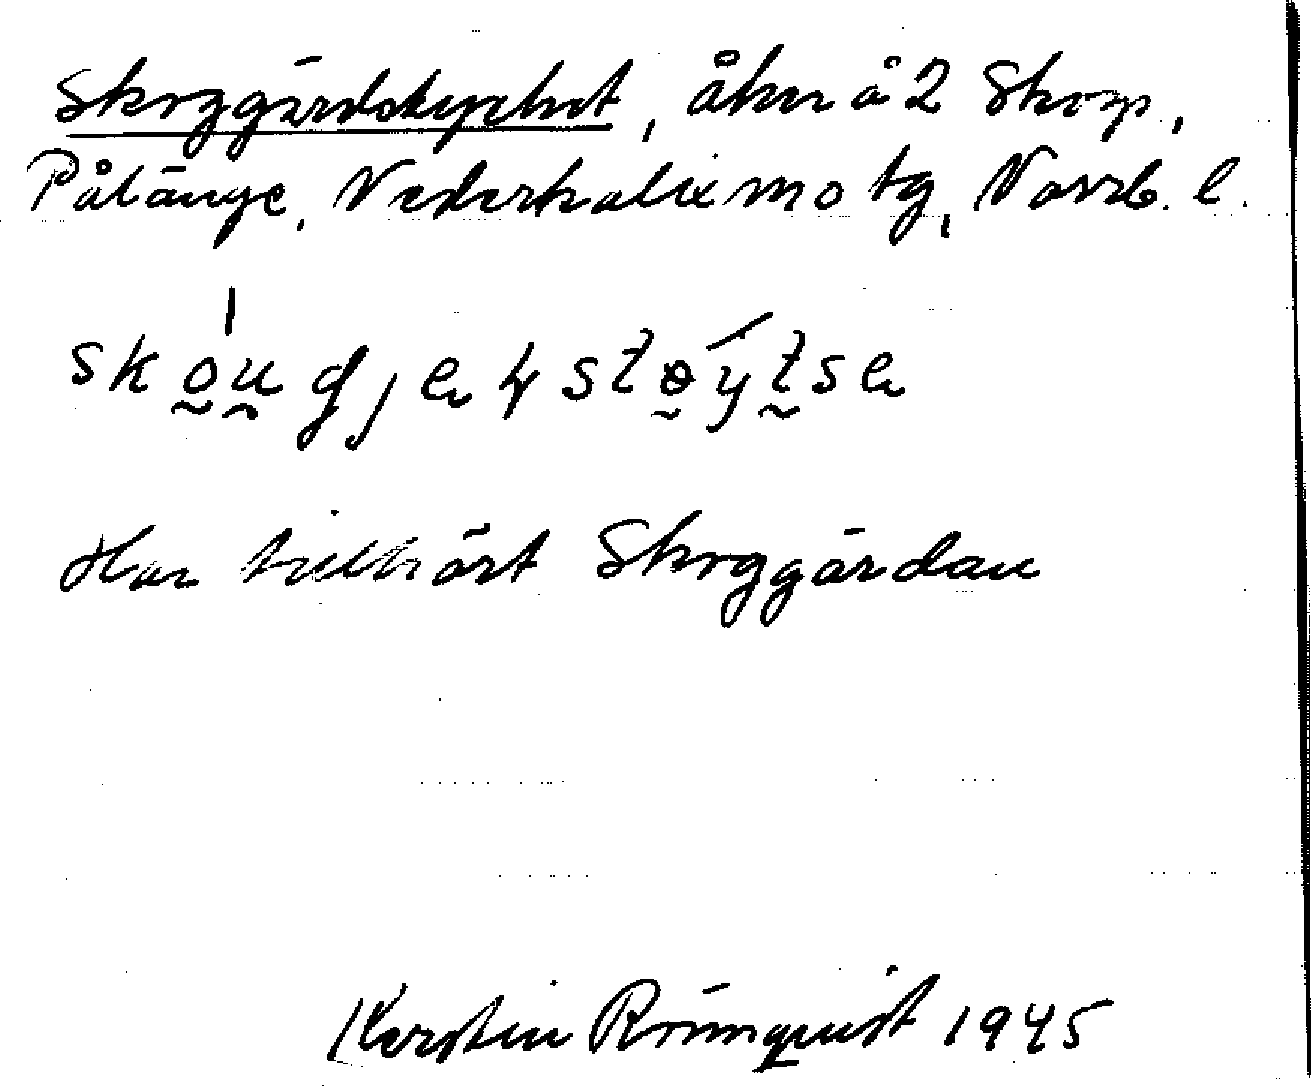 Skoggårdsstycket, åker å 2 Skog,
Pålänge, Nederkalix mo tg, Norrb. l.
Har tillhört Skoggärdan
Kerstin Rönnquist 1945